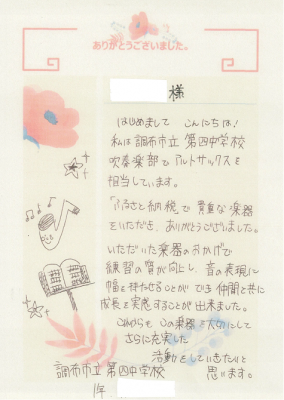 ありがとうございました。
様
はじめまして こんにちは!
私は調布市立第四中学校
吹奏楽部でアルトサックスを
担当しています。
「ふるさと納税」で貴重な楽器
をいただき、ありがとうございました。
いただいた楽器のおかげで
練習の質が向上し、音の表現に
幅を持たせることができ 仲間と共に
成長を実感することが出来ました。
これからも この楽器を大切にして
さらに充実した
活動をしていきたいと
思います。
調布市立第四中学校
1年